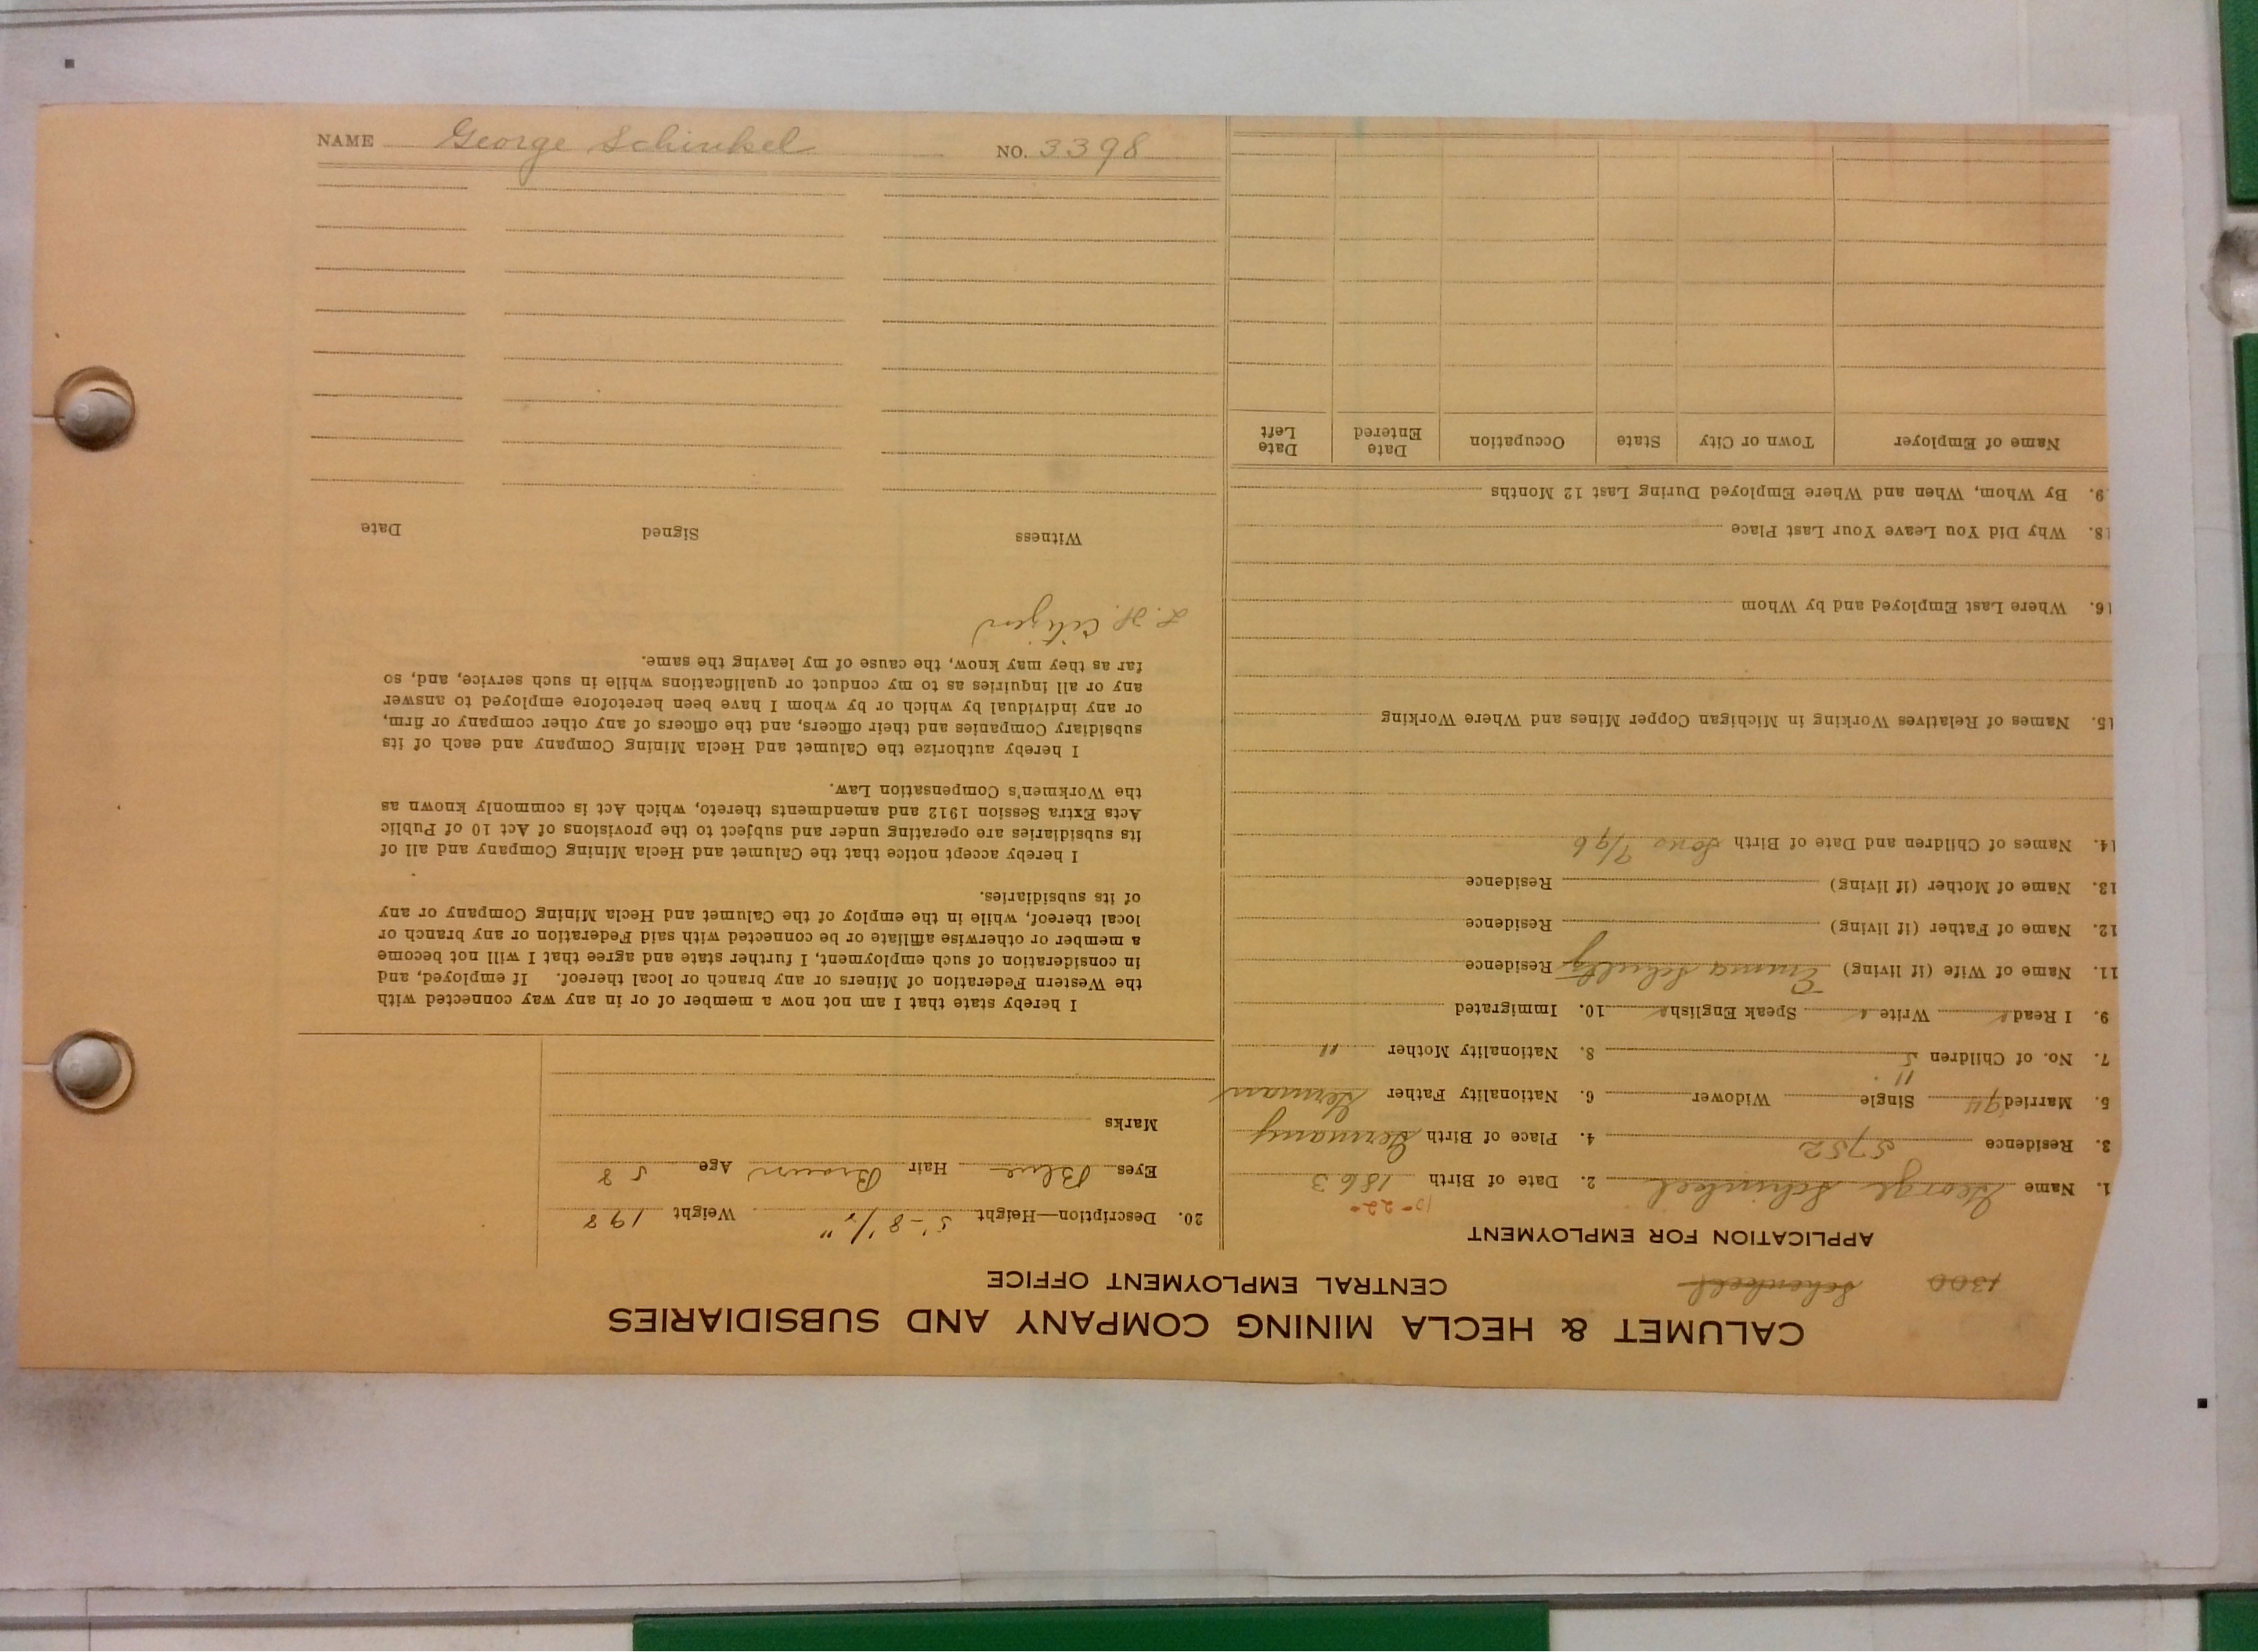 NAME George Schinkel NO. 3398
CALUMET & HECLA MINING COMPANY AND SUBSIDIARIES
CENTRAL EMPLOYMENT OFFICE
1300 Schenkel
APPLICATION FOR EMPLOYMENT
10-22-
1. Name George Schinkel 2. Date of Birth 1863
3. Residence 5752 4. Place of Birth Germany
5. Married 94 Single Widower 6. Nationality Father German
7. No. of Children 5 8. Nationality Mother "
9. I Read Write Speak English 10. Immigrated
11. Name of Wife (if living) Emma Schultz Residence
12. Name of Father (if living) Residence
13. Name of Mother (if living) Residence
14. Names of Children and Date of Birth
15. Names of Relatives Working in Michigan Copper Mines and Where Working
16. Where Last Employed and by Whom
18. Why Did You Leave Your Last Place
9. By Whom, When and Where Employed During Last 12 Months
Name of Employer Town or City State Occupation Date Entered Date Left
20. Description—Height 5'-8 1/2" Weight 198
Eyes Blue Hair Brown Age 58
Marks
I hereby state that I am not now a member of or in any way connected with
the Western Federation of Miners or any branch or local thereof. If employed, and
in consideration of such employment, I further state and agree that I will not become
a member or otherwise affiliate or be connected with said Federation or any branch or
local thereof, while in the employ of the Calumet and Hecla Mining Company or any
of its subsidiaries.
I hereby accept notice that the Calumet and Hecla Mining Company and all of
its subsidiaries are operating under and subject to the provisions of Act 10 of Public
Acts Extra Session 1912 and amendments thereto, which Act is commonly known as
the Workmen's Compensation Law.
I hereby authorize the Calumet and Hecla Mining Company and each of its
subsidiary Companies and their officers, and the officers of any other company or firm,
or any individual by which or by whom I have been heretofore employed to answer
any or all inquiries as to my conduct or qualifications while in such service, and, so
far as they may know, the cause of my leaving the same.
Citizen
Witness Signed Date